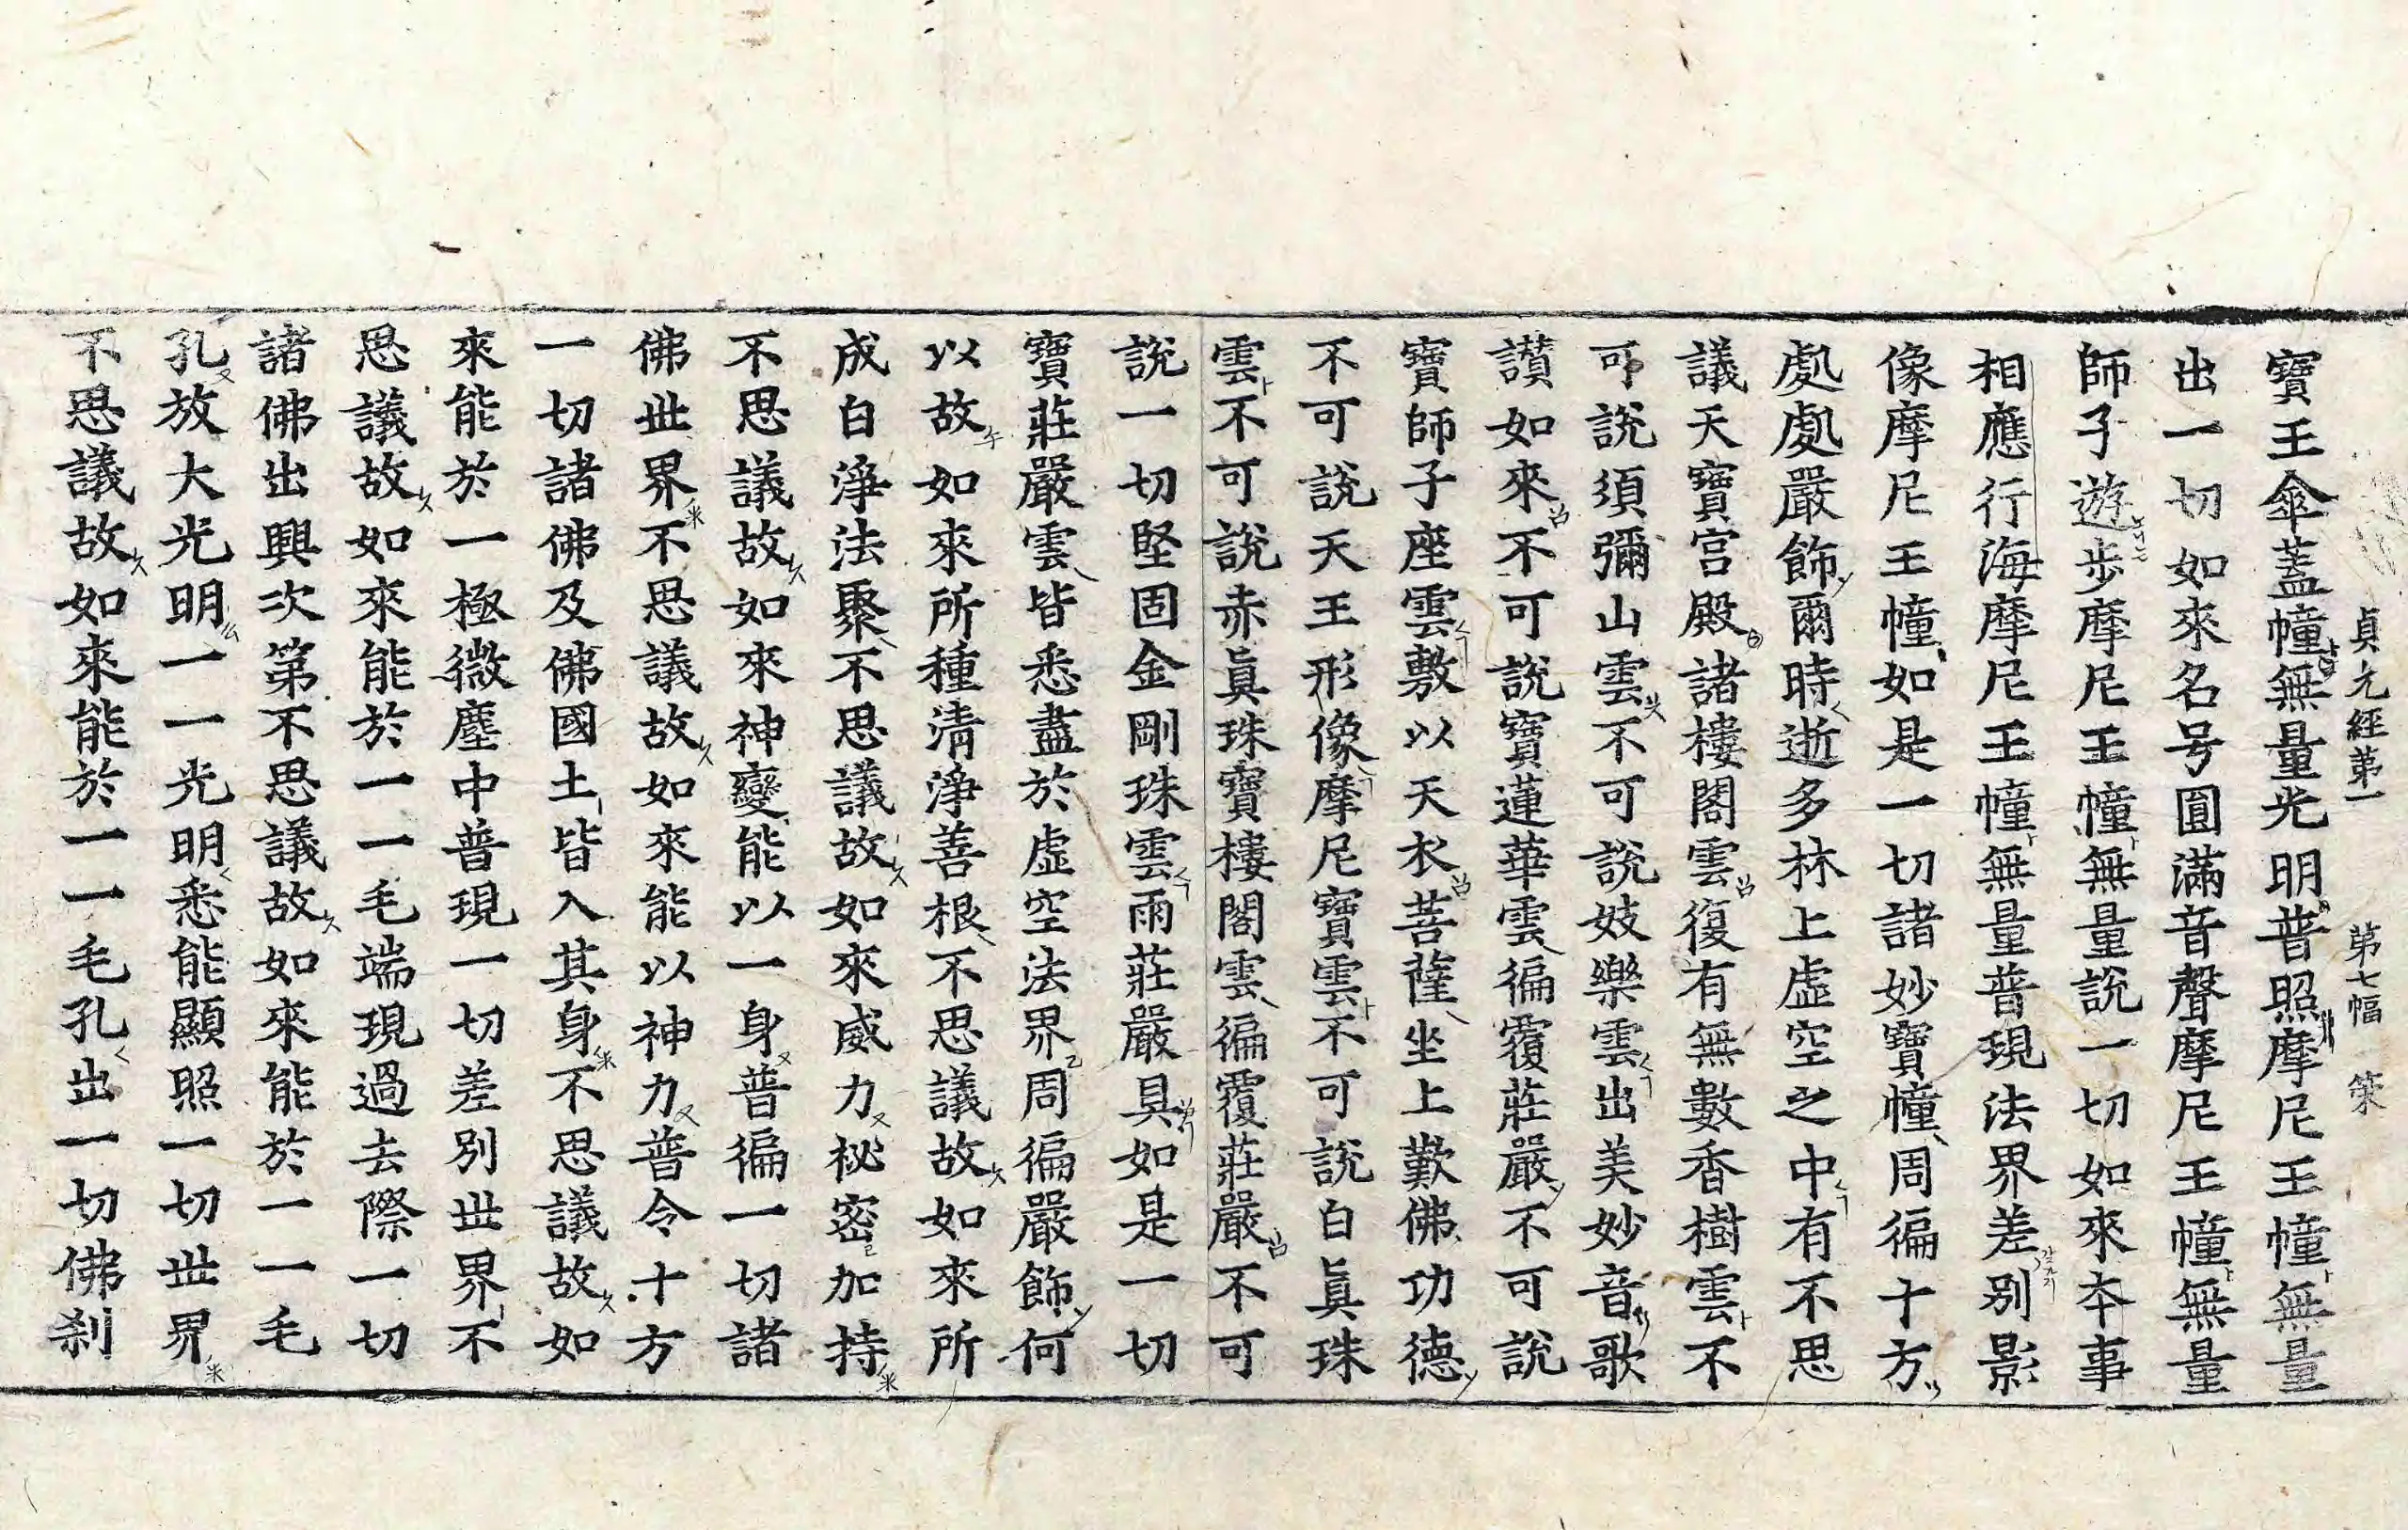 貞元經第一 第七幅 策
寶王傘蓋幢無量光明普照摩尼王幢無量
出一切如來名号圓滿音聲摩尼王幢無量
師子遊步摩尼王幢無量說一切如來本事
相應行海摩尼王幢無量普現法界差別影
像摩尼王幢如是一切諸妙寶幢周徧十方
處處嚴飾爾時逝多林上虛空之中有不思
議天寶宮殿諸樓閣雲復有無數香樹雲不
可說須彌山雲不可說妓樂雲出美妙音歌
讃如來不可說寶蓮華雲徧覆莊嚴不可說
寶師子座雲敷以天衣菩薩坐上歎佛功德
不可說天王形像摩尼寶雲不可說白眞珠
雲不可說赤眞珠寶樓閣雲徧覆莊嚴不可
說一切堅固金剛珠雲雨莊嚴具如是一切
寶莊嚴雲皆悉盡於虛空法界周徧嚴飾何
以故如來所種清淨善根不思議故如來所
成白淨法聚不思議故如來威力祕密加持
不思議故如來神變能以一身普徧一切諸
佛世界不思議故如來能以神力普令十方
一切諸佛及佛國土皆入其身不思議故如
來能於一極微塵中普現一切差別世界不
思議故如來能於一一毛端現過去際一切
諸佛出興次第不思議故如來能於一一毛
孔放大光明一一光明悉能顯照一切世界
不思議故如來能於一一毛孔出一切佛刹